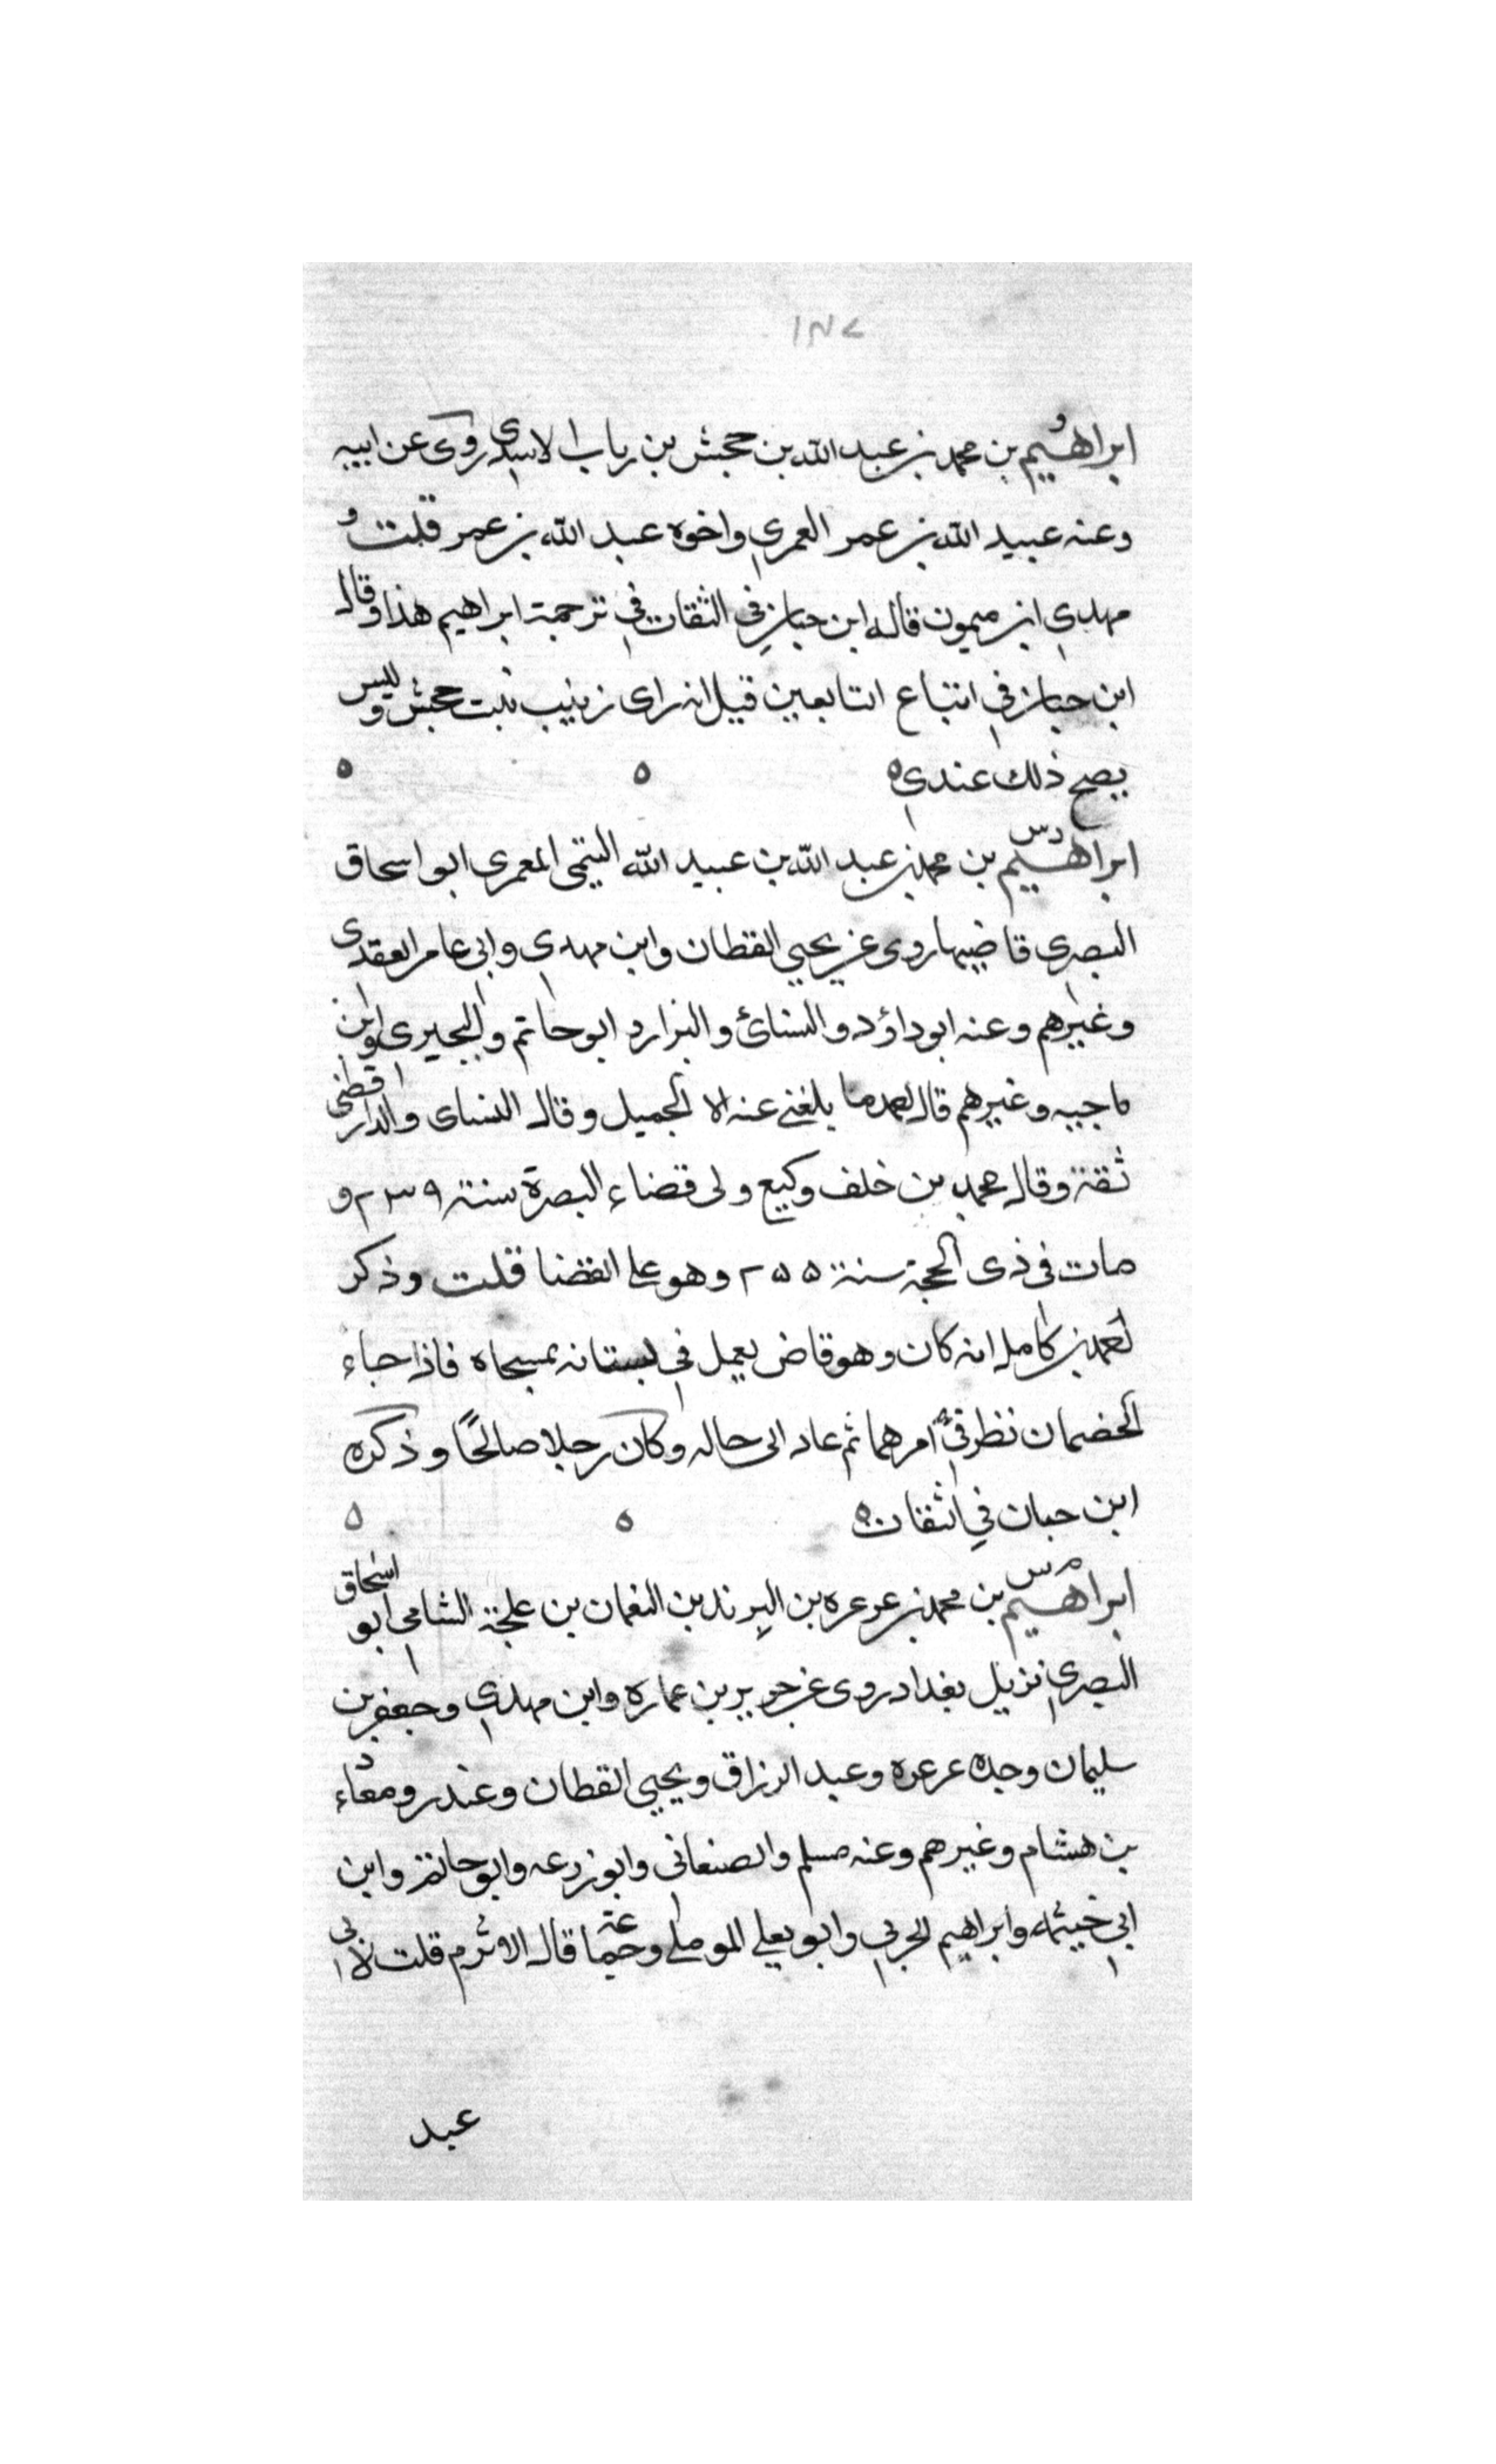 ١٣٧
ابراهيم بن محمد بن عبد الله بن جحش بن رياب الاسدى روى عن ابيه
وعنه عبيد الله بن عمر العمري واخوه عبد الله بن عمر قلت و
مهدي ابن ميمون قاله ابن حبان في الثقات في ترجمة ابراهيم هذا وقال
ابن حبان في اتباع التابعين قيل انه راى زينب بنت جحش وليس
يصح ذلك عندي ه ه ه
ابراهيم دس بن محمد بن عبد الله بن عبيد الله التيمى المعمرى ابو اسحاق
البصري قاضيها روى عن يحيي القطان وابن مهدي وابى عامر العقدى
وغيرهم وعنه ابو داؤد والنسائ والبزارد ابو حاتم والبجيرى وابن
ناجيه وغيرهم قال احمد ما بلغني عنه الا الجميل وقال النساى والدارقطنى
ثقة وقال محمد بن خلف وكيع ولى قضاء البصرة سنة ٢٣٩ و
مات فى ذى الحجة سنة ٢٥٥ وهو على القضا قلت وذكر
احمد بن كامل انه كان وهو قاض يعمل في بستانه بمسحاه فاذا جاء
الخصمان نظر في امرهما ثم عاد الى حاله وكان رجلا صالحًا وذكره
ابن حبان في الثقات ه ه ه
ابراهيم م س بن محمد بن عرعره بن البرند بن النعمان بن علجة الشامي ابو اسحاق
البصري نزيل بغداد روى عن جرير بن عماره وابن مهدي وجعفر بن
سليمان وجده عرعره وعبد الرزاق ويحيي القطان وغندر ومعاذ
بن هشام وغيرهم وعنه مسلم والصنعانى وابو زرعه وابو حاتم وابن
ابي خيثمه وابراهيم الحربي وابو يعلي الموصلي وجماعة قال الاثرم قلت لابى
عبد